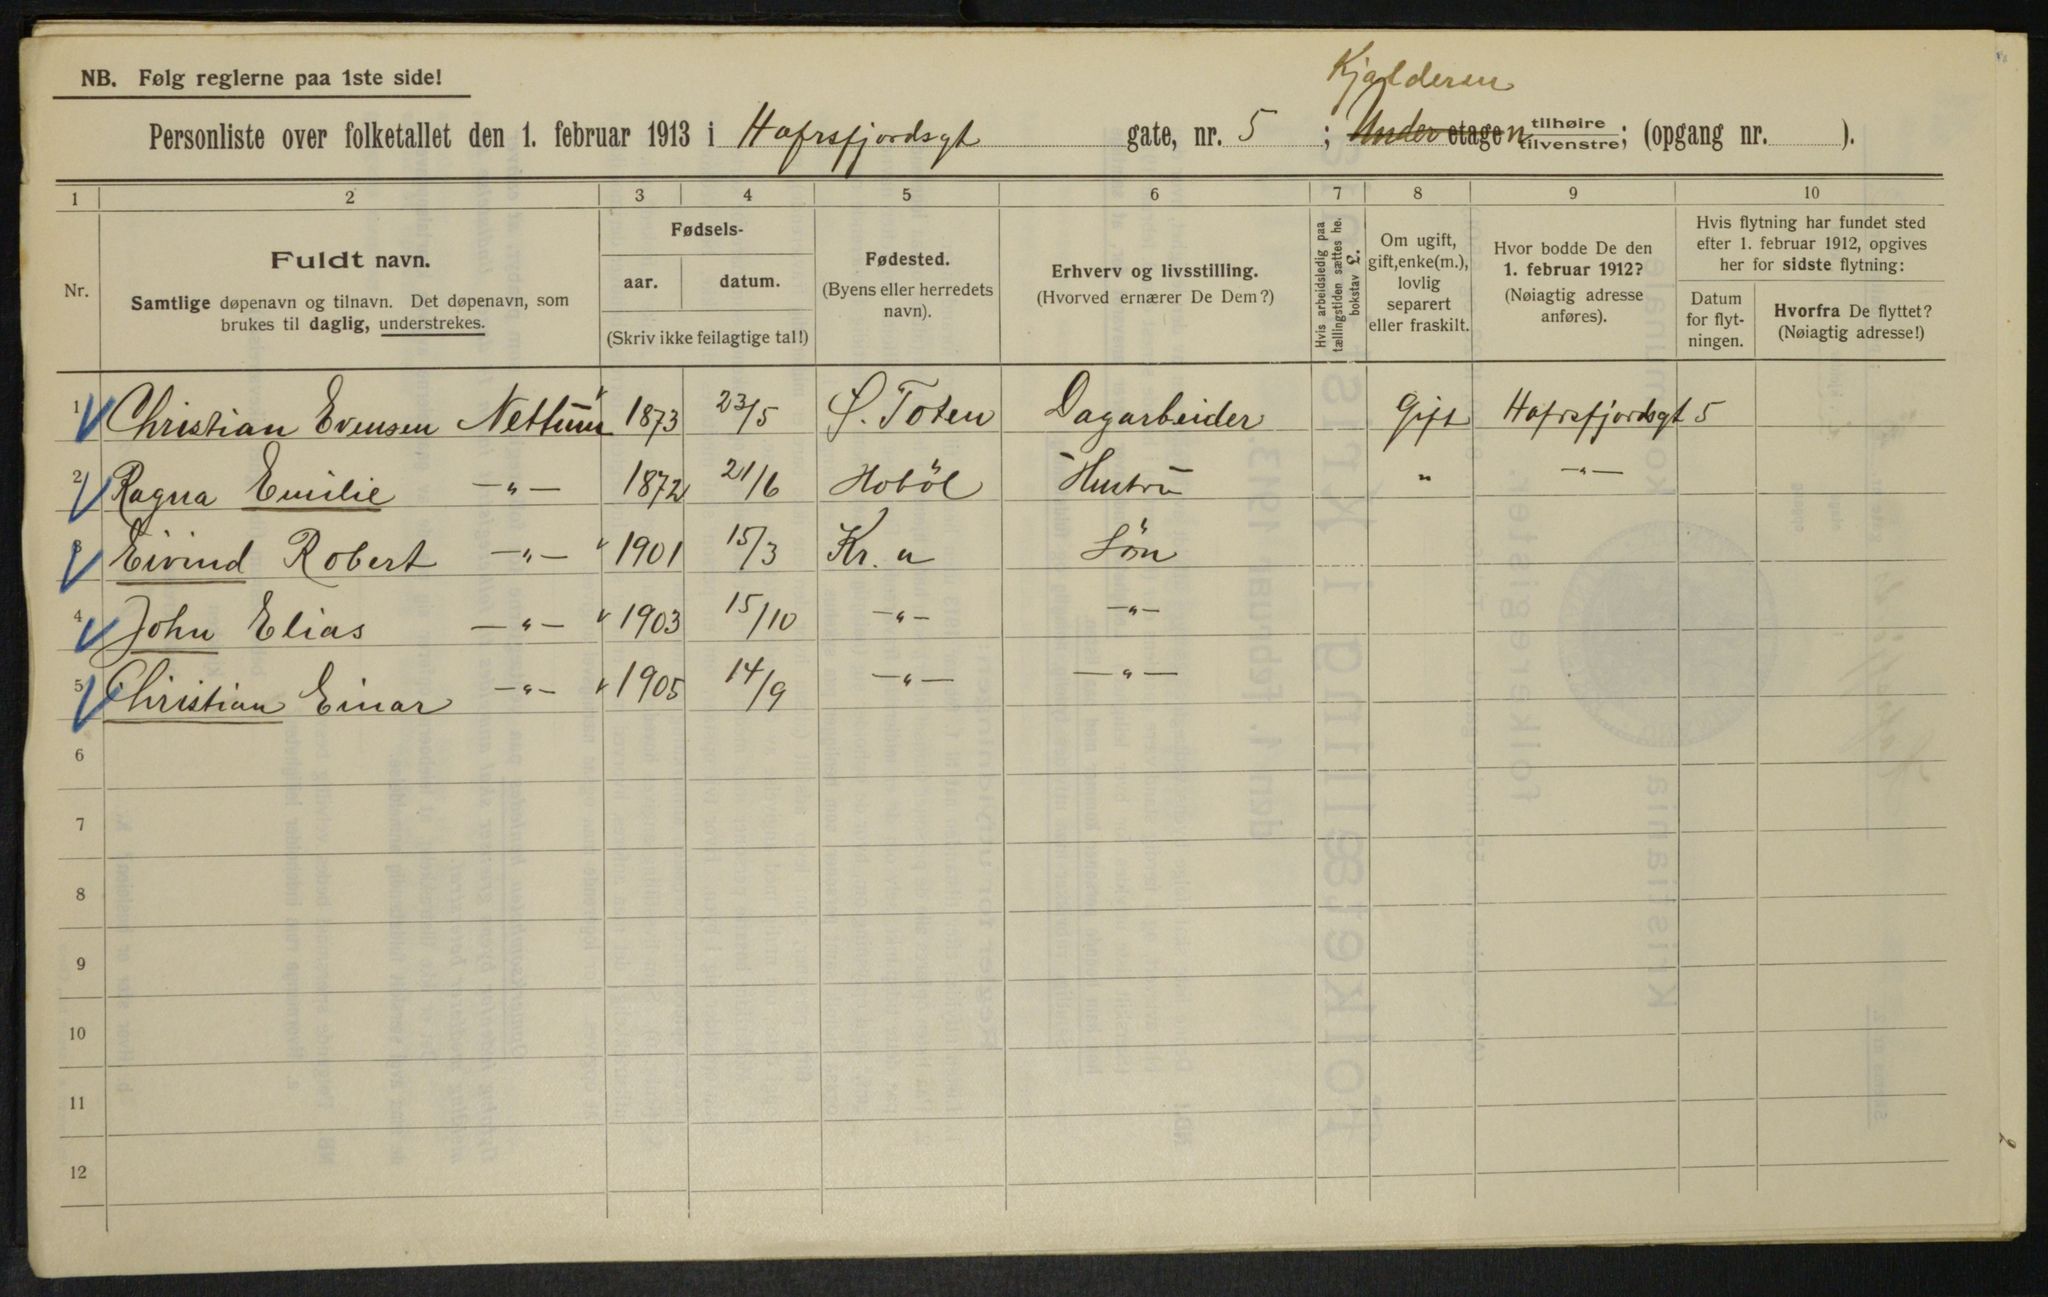 Kjælderen
NB. Følg reglerne paa 1ste side!
Personliste over folketallet den 1. februar 1913 i Hafrsfjordsgt gate, nr. 5 ; Under etagen tilhøire tilvenstre; (opgang nr. ).
1 2 3 4 5 6 7 8 9 10
Nr.
Fuldt navn.
Samtlige døpenavn og tilnavn. Det døpenavn, som
brukes til daglig, understrekes.
Fødsels-
aar. datum.
(Skriv ikke feilagtige tal!)
Fødested.
(Byens eller herredets
navn).
Erhverv og livsstilling.
(Hvorved ernærer De Dem?)
Hvis arbeidsledig paa
tællingstiden sættes he.
bokstav L.
Om ugift,
gift, enke(m.),
lovlig
separert
eller fraskilt.
Hvor bodde De den
1. februar 1912?
(Nøiagtig adresse
anføres).
Hvis flytning har fundet sted
efter 1. februar 1912, opgives
her for sidste flytning:
Datum
for flyt-
ningen.
Hvorfra De flyttet?
(Nøiagtig adresse!)
1 Christian Evensen Nettum 1873 23/5 Ø. Toten Dagarbeider Gift Hafrsfjordsgt 5
2 Ragna Emilie —"— 1872 21/6 Hobøl Hustru " —"—
3 Eivind Robert —"— 1901 15/3 Kr. a Søn
4 John Elias —"— 1903 15/10 —"— —"—
5 Christian Einar —"— 1905 14/9 —"— —"—
6
7
8
9
10
11
12